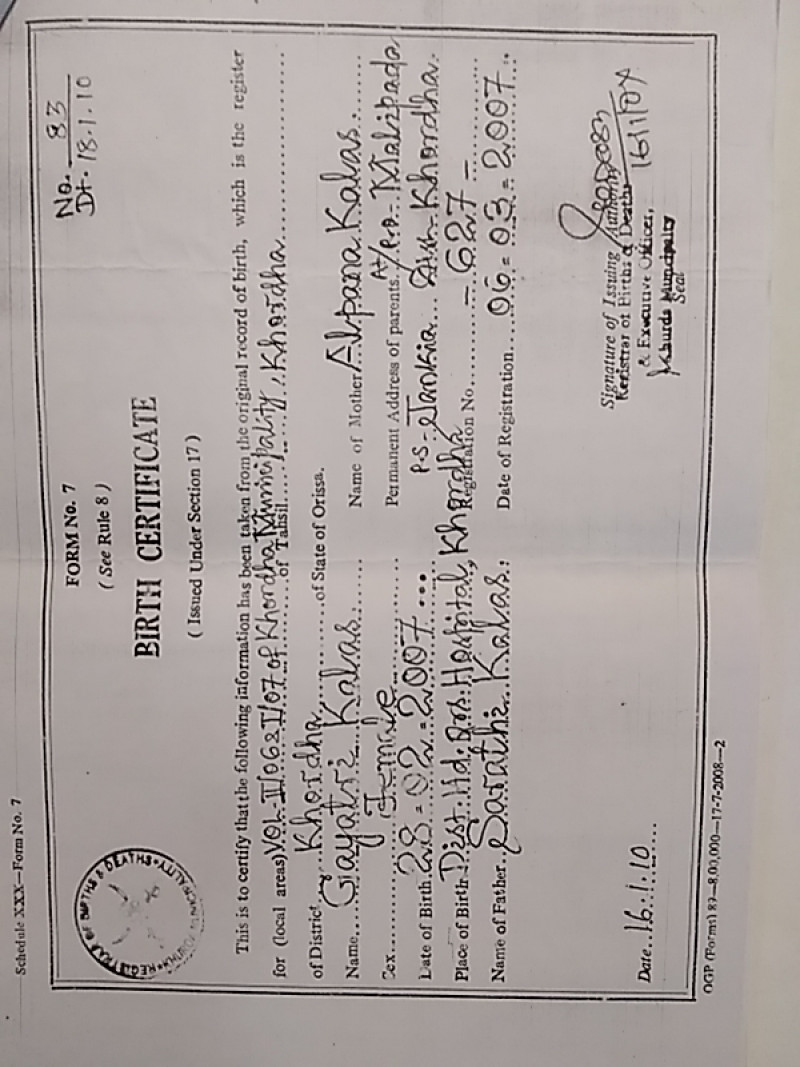 Schedule XXX—Form No. 7
No. 83
Dt. 18.1.10
FORM No. 7
( See Rule 8 )
BIRTH CERTIFICATE
( Issued Under Section 17 )
This is to certify that the following information has been taken from the original record of birth, which is the register
for (local areas) VOL-II/06 & I/07 of Khordha Municipality, of Tahsil Khordha
of District Khordha of State of Orissa.
Name Gayatri Kalas Name of Mother Alpana Kalas
Sex Female Permanent Address of parents. At/P.O- Malipada
P.S- Jankia Dist- Khordha
Date of Birth 28-02-2007
Place of Birth Dist. Hd. Qrs. Hospital, Khordha Registration No. - 627 -
Name of Father Sarathi Kalas Date of Registration 06-03-2007
Signature of Issuing Authority
Registrar of Births & Deaths
& Executive Officer,
Khurda Municipality
Seal
Date 16.1.10
OGP (Forms) 82—8,00,000—17-7-2008—2
REGISTRAR OF BIRTHS & DEATHS